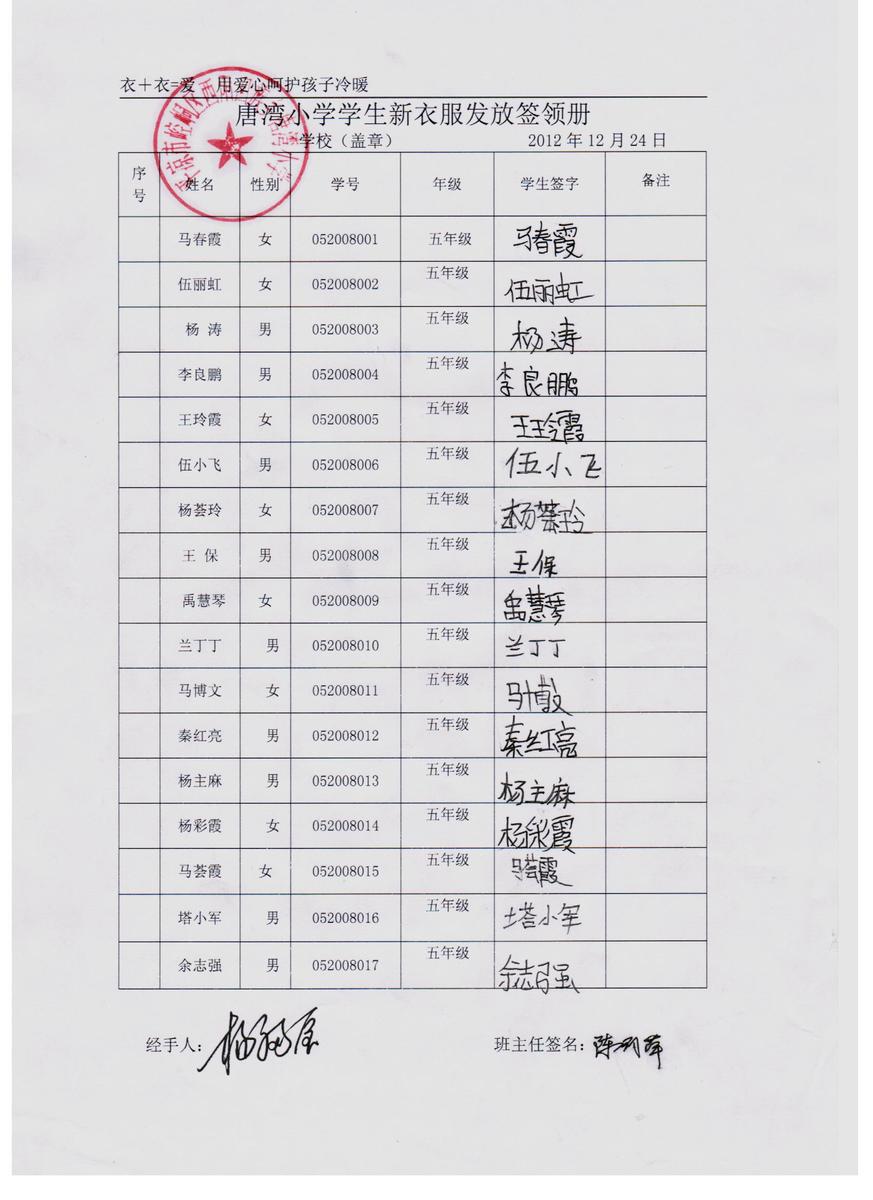 衣＋衣=爱 用爱心呵护孩子冷暖
唐湾小学学生新衣服发放签领册
学校（盖章） 2012 年 12 月 24 日
序号 姓名 性别 学号 年级 学生签字 备注
马春霞 女 052008001 五年级 马春霞
伍丽虹 女 052008002 五年级 伍丽虹
杨 涛 男 052008003 五年级 杨涛
李良鹏 男 052008004 五年级 李良鹏
王玲霞 女 052008005 五年级 王玲霞
伍小飞 男 052008006 五年级 伍小飞
杨荟玲 女 052008007 五年级 杨荟玲
王 保 男 052008008 五年级 王保
禹慧琴 女 052008009 五年级 禹慧琴
兰丁丁 男 052008010 五年级 兰丁丁
马博文 女 052008011 五年级 马博文
秦红亮 男 052008012 五年级 秦红亮
杨主麻 男 052008013 五年级 杨主麻
杨彩霞 女 052008014 五年级 杨彩霞
马荟霞 女 052008015 五年级 马荟霞
塔小军 男 052008016 五年级 塔小军
余志强 男 052008017 五年级 余志强
经手人： 班主任签名：